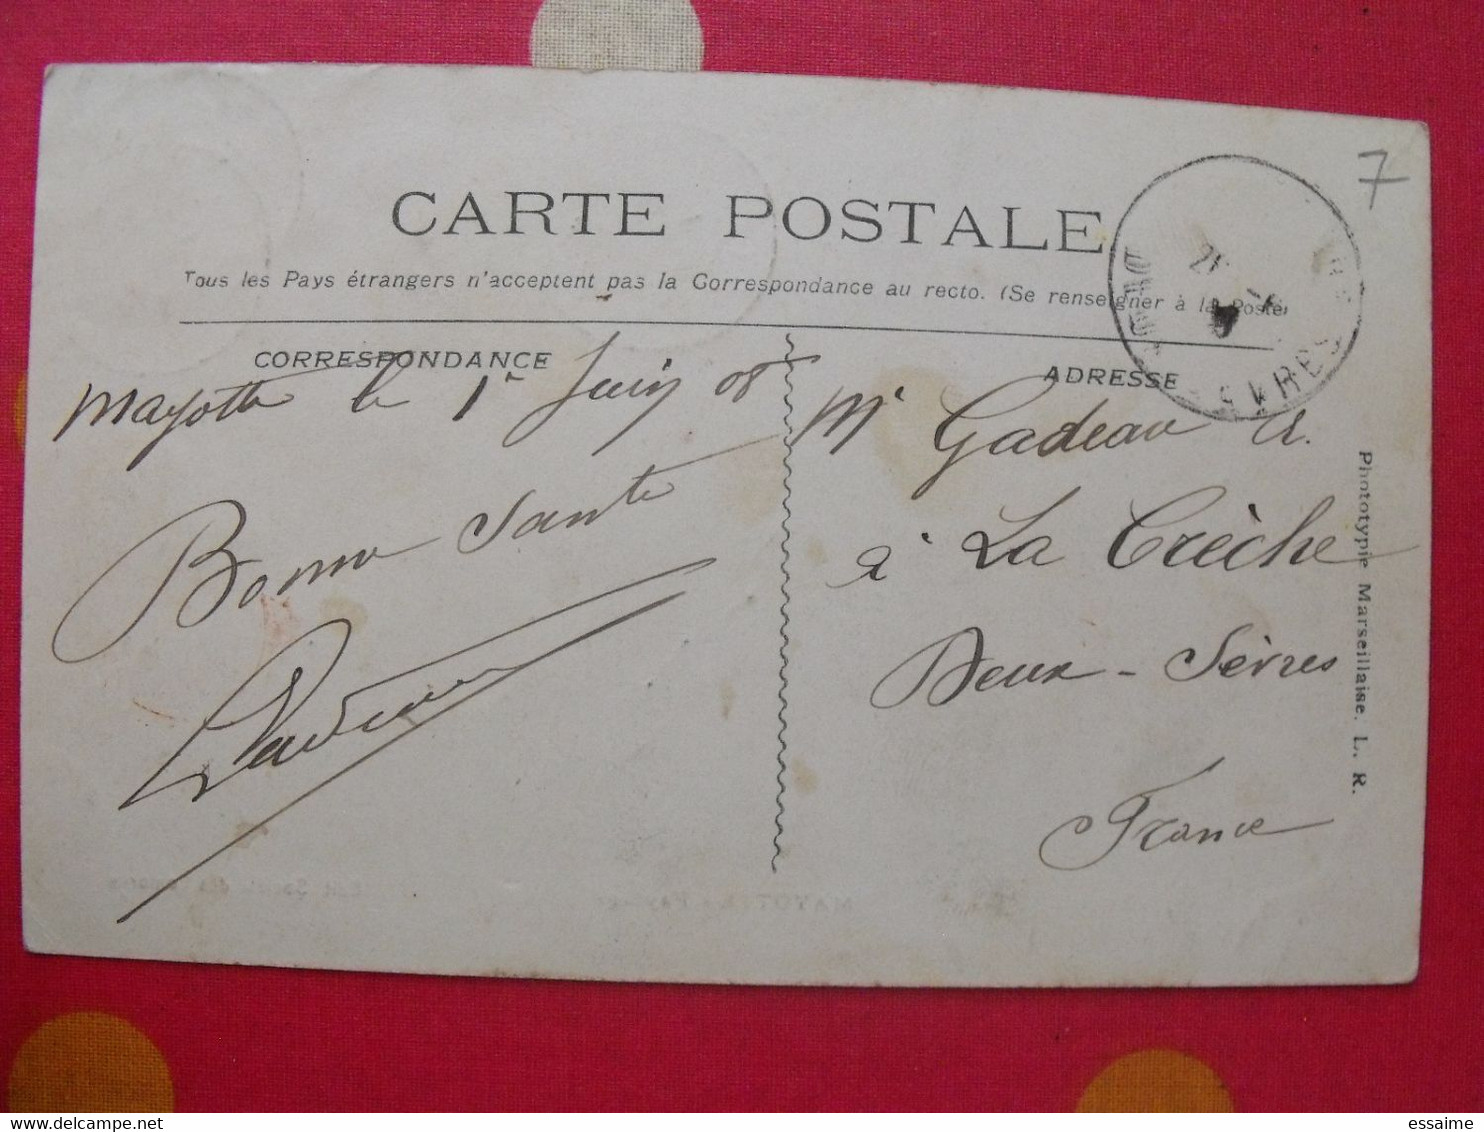 7
CARTE POSTALE
Tous les Pays étrangers n'acceptent pas la Correspondance au recto. (Se renseigner à la Poste)
CORRESPONDANCE
ADRESSE
Mayotte le 1er Juin 08
Bonne Santé
Mr Gadeau A.
à La Crèche
Deux-Sèvres
France
Phototypie Marseillaise. L. R.
delcampe.net
essaime